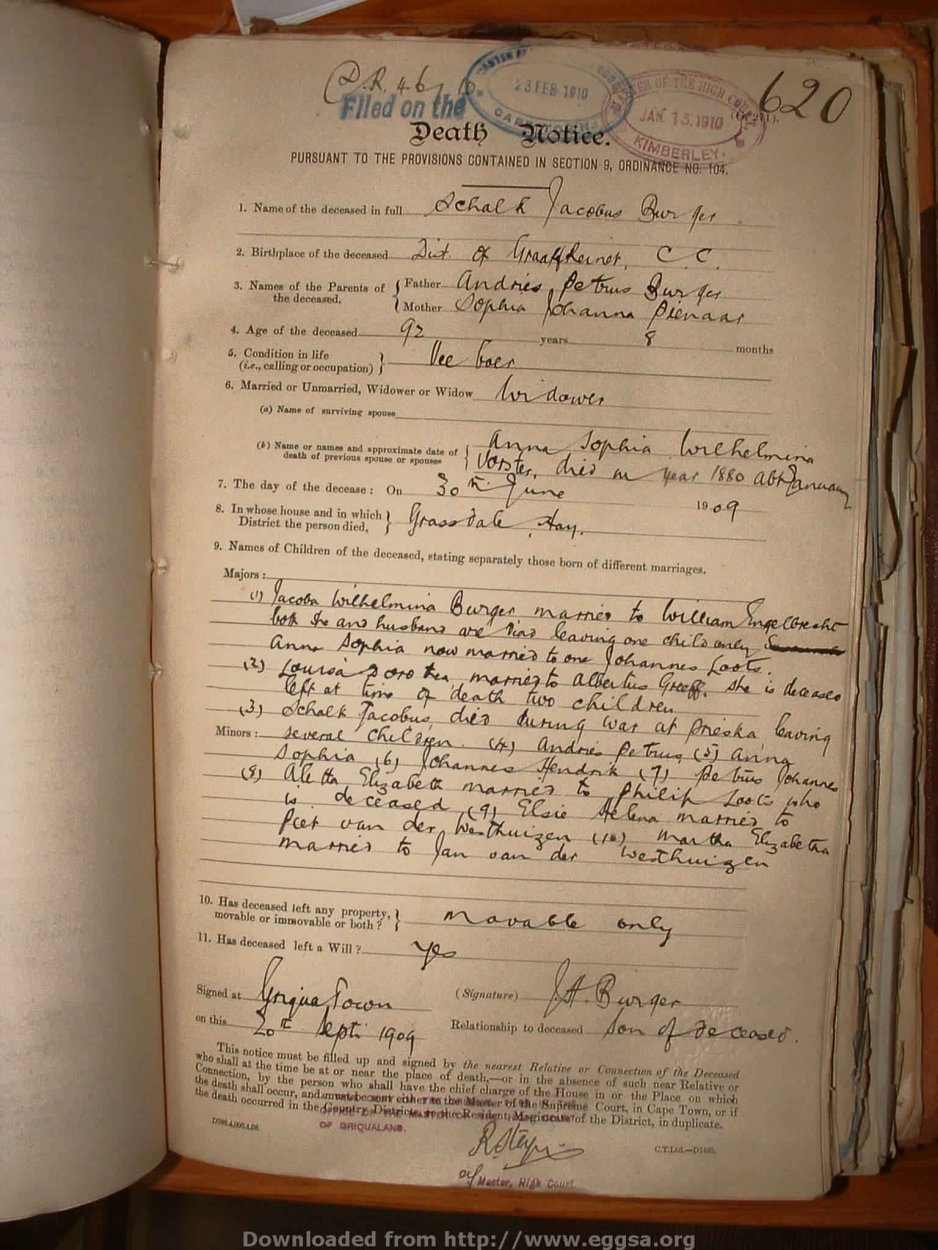 620
Filed on the
23 FEB 1910
JAN 15.1910
KIMBERLEY
Death Notice.
PURSUANT TO THE PROVISIONS CONTAINED IN SECTION 9, ORDINANCE NO. 104.
1. Name of the deceased in full Schalk Jacobus Burger
2. Birthplace of the deceased Dist. of Graaff Reinet, C. C.
3. Names of the Parents of the deceased. Father Andries Petrus Burger
Mother Sophia Johanna Pienaar
4. Age of the deceased 92 years 8 months
5. Condition in life (i.e., calling or occupation) Vee boer
6. Married or Unmarried, Widower or Widow Widower
(a) Name of surviving spouse
(b) Name or names and approximate date of death of previous spouse or spouses Anna Sophia Wilhelmina
Vorster, died in year 1880 abt January
7. The day of the decease: On 30th June 1909
8. In whose house and in which District the person died, Grassdale, Hay.
9. Names of Children of the deceased, stating separately those born of different marriages.
Majors:
(1) Jacoba Wilhelmina Burger married to William Engelbrecht
both she and husband are dead leaving one child only
Anna Sophia now married to one Johannes Loots.
(2) Louisa Dorothea married to Albertus Greeff. She is deceased
left at time of death two children
(3) Schalk Jacobus, died during war at Prieska leaving
Minors: several children. (4) Andries Petrus (5) Anna
Sophia (6) Johannes Hendrik (7) Petrus Johannes
(8) Aletta Elizabeth married to Philip Loots who
is deceased (9) Elsie Helena married to
Piet van der Westhuizen (10) Martha Elizabetha
married to Jan van der Westhuizen
10. Has deceased left any property, movable or immovable or both? Movable only
11. Has deceased left a Will? Yes
Signed at Griqua Town (Signature) J.H. Burger
on this 20th Sept 1909 Relationship to deceased Son of deceased.
This notice must be filled up and signed by the nearest Relative or Connection of the Deceased
who shall at the time be at or near the place of death,—or in the absence of such near Relative or
Connection, by the person who shall have the chief charge of the House in or the Place on which
the death shall occur, and must be sent either to the Master of the Supreme Court, in Cape Town, or if
the death occurred in the Country Districts, to the Resident Magistrate of the District, in duplicate.
OF GRIQUALAND.
Master, High Court
Downloaded from http://www.eggsa.org